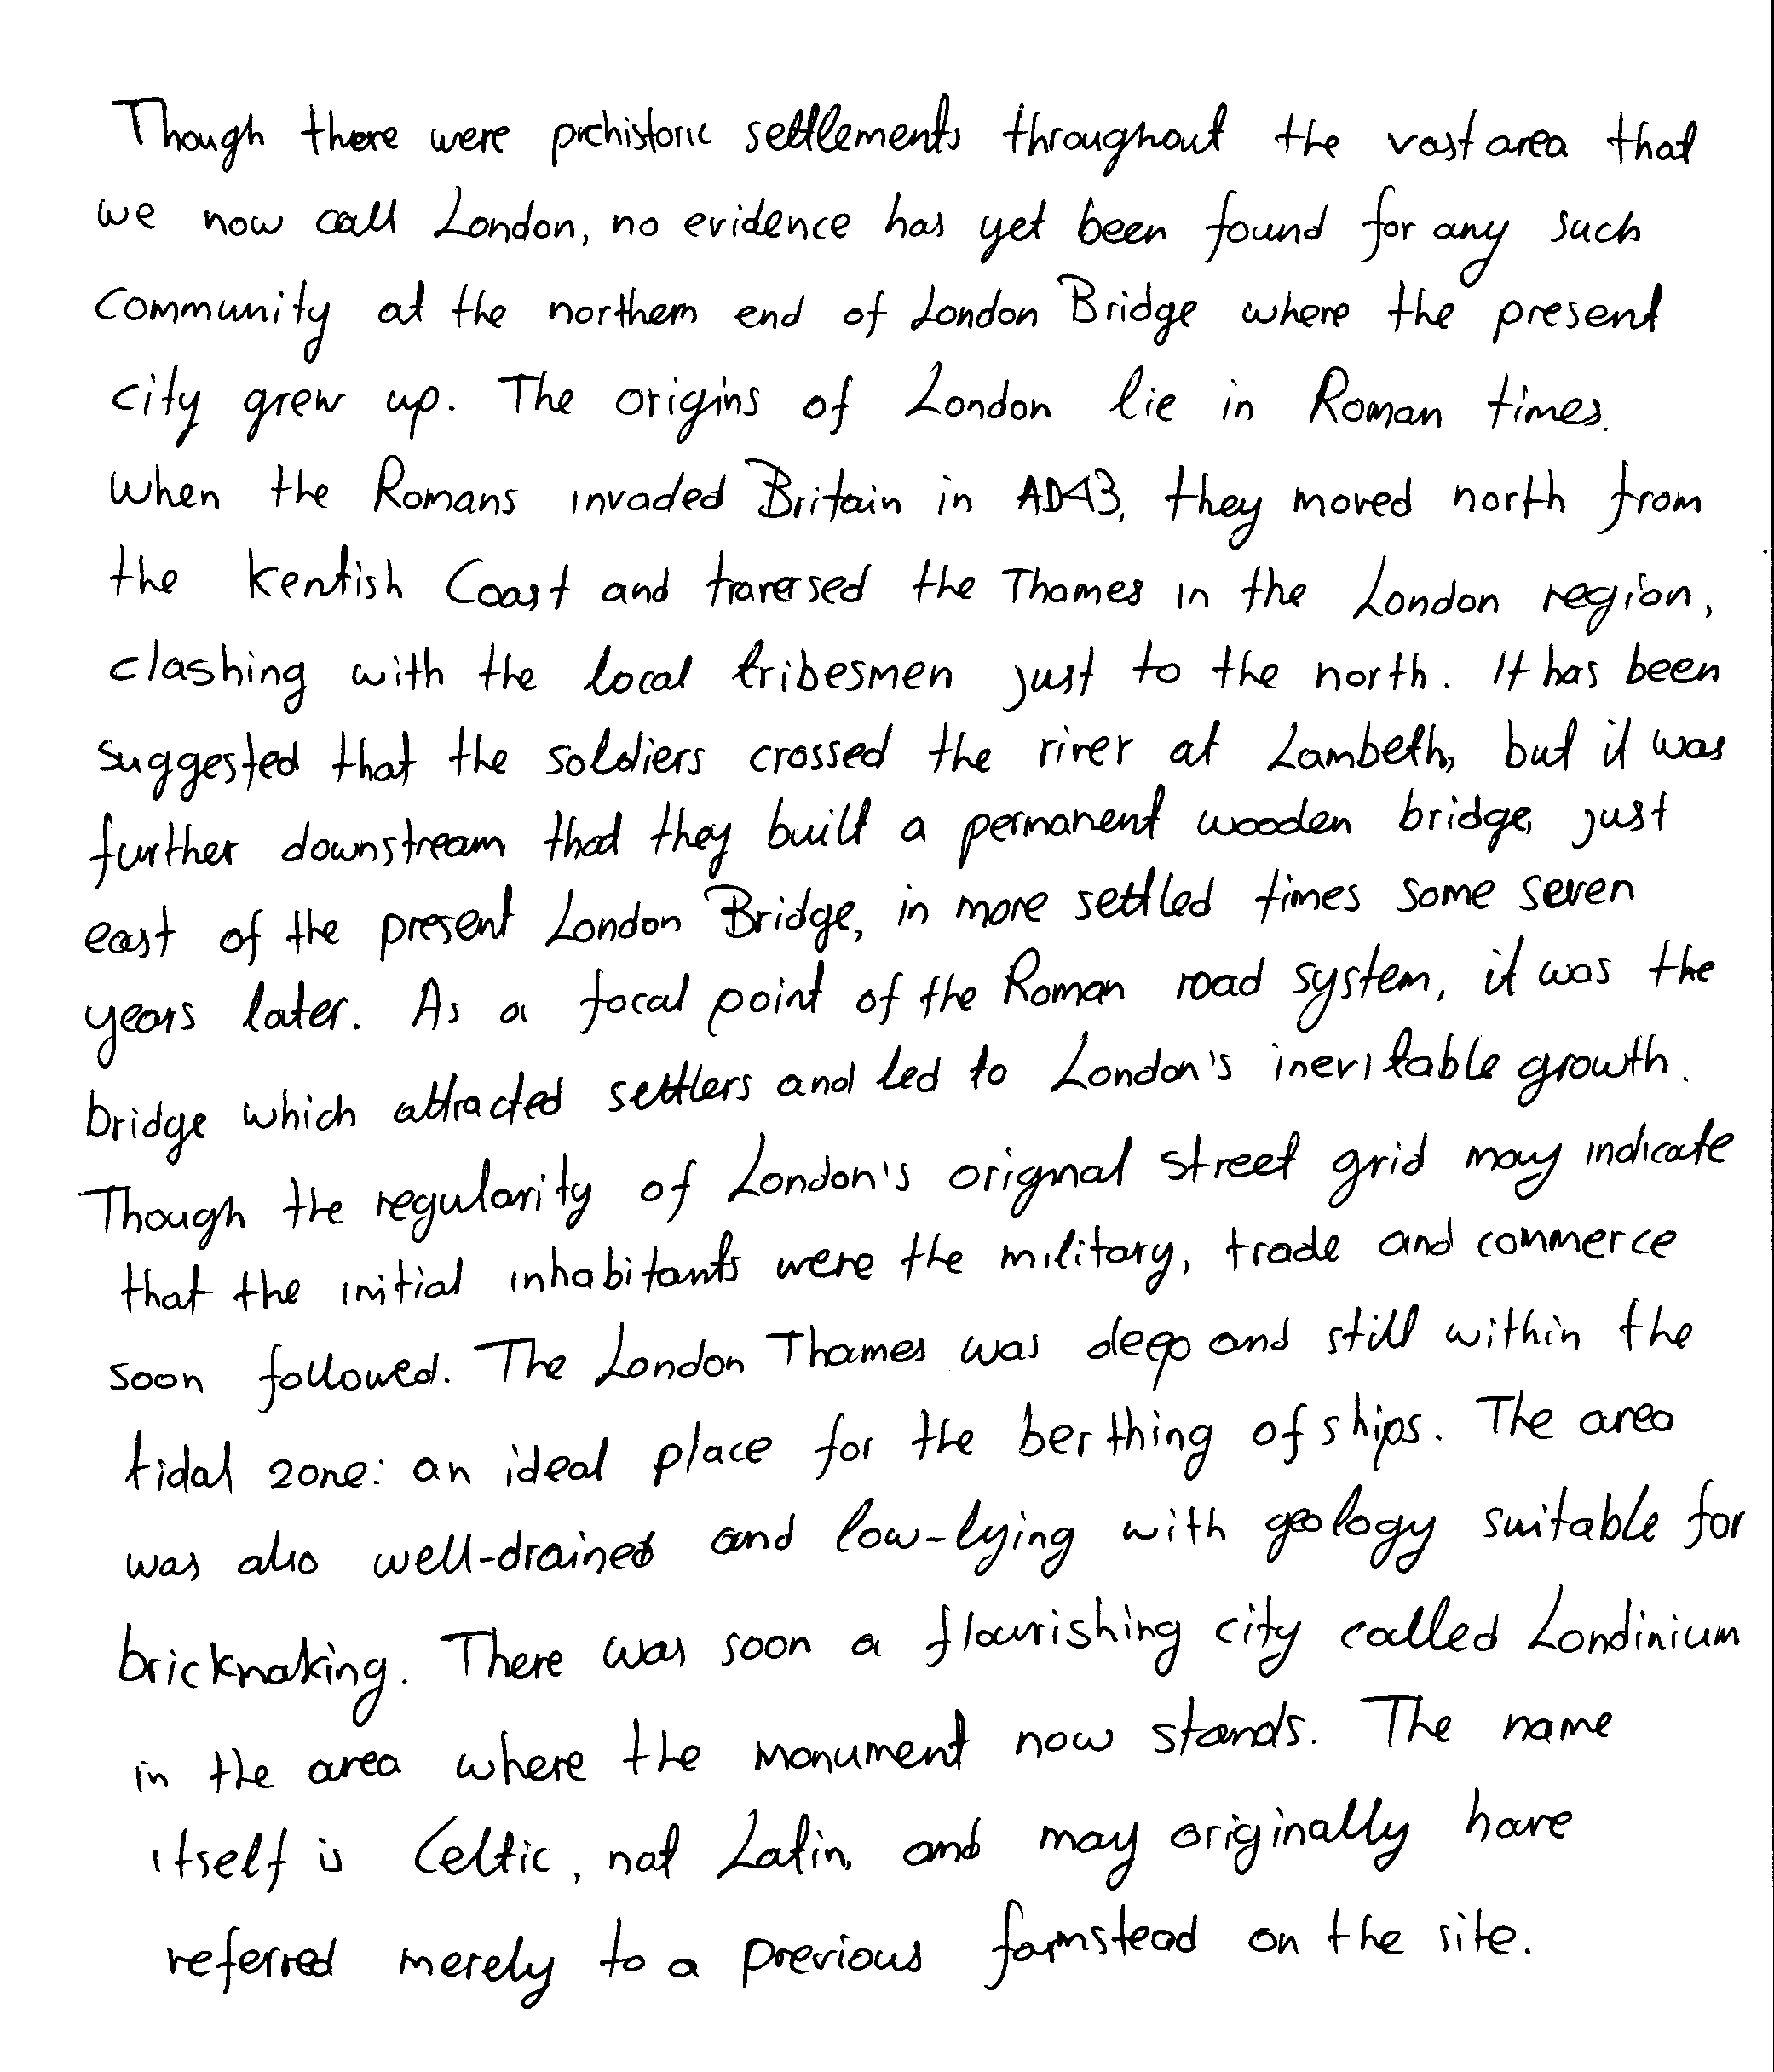 Though there were prehistoric settlements throughout the vast area that
we now call London, no evidence has yet been found for any such
community at the northern end of London Bridge where the present
city grew up. The origins of London lie in Roman times.
When the Romans invaded Britain in AD43, they moved north from
the Kentish Coast and traversed the Thames in the London region,
clashing with the local tribesmen just to the north. It has been
suggested that the soldiers crossed the river at Lambeth, but it was
further downstream that they built a permanent wooden bridge, just
east of the present London Bridge, in more settled times some seven
years later. As a focal point of the Roman road system, it was the
bridge which attracted settlers and led to London's inevitable growth.
Though the regularity of London's original street grid may indicate
that the initial inhabitants were the military, trade and commerce
soon followed. The London Thames was deep and still within the
tidal zone: an ideal place for the berthing of ships. The area
was also well-drained and low-lying with geology suitable for
brickmaking. There was soon a flourishing city called Londinium
in the area where the monument now stands. The name
itself is Celtic, not Latin, and may originally have
referred merely to a previous farmstead on the site.